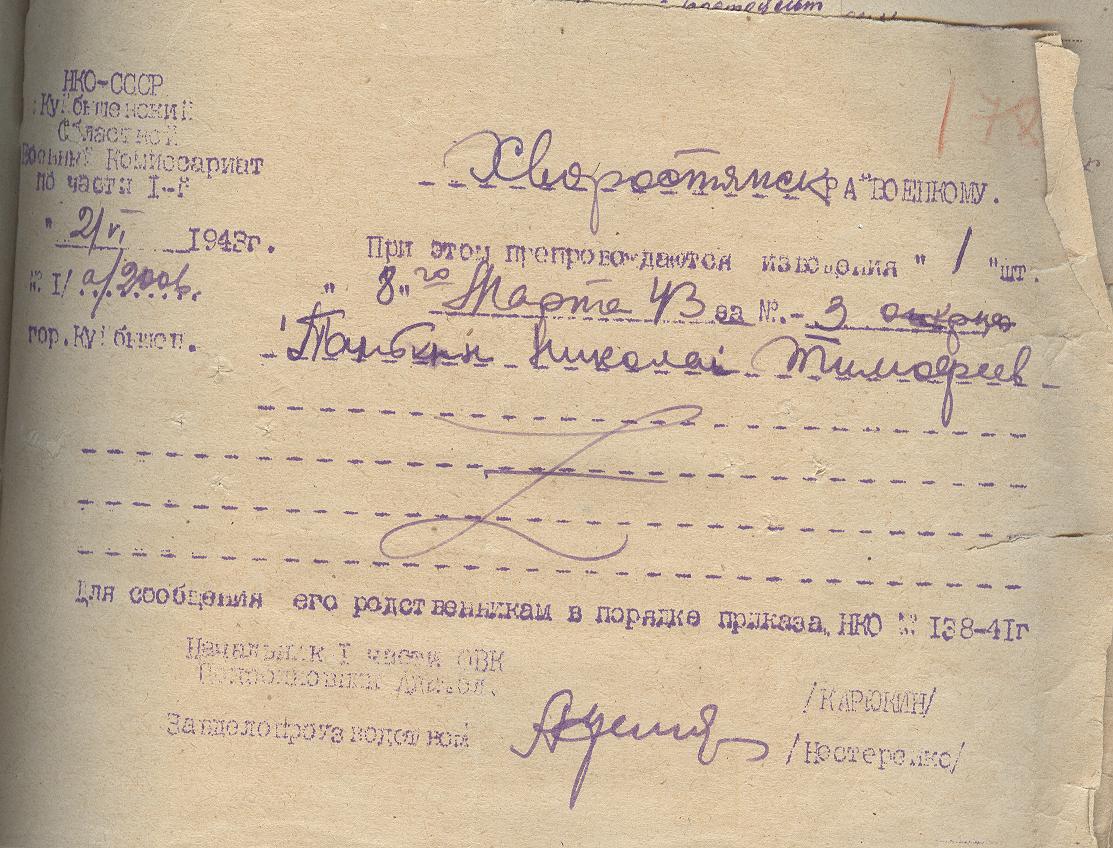 НКО-СССР
Куйбышевский
Областной
Военный Комиссариат
по части I-й
" 2/VI 1943г.
№ I/
гор.Куйбышев.
178
Хворостянск РАЙВОЕНКОМУ.
При этом препровождаются извещения " 1 "шт.
" 8 " го Марта 43 за №.- 3
Николай Тимофеев
Для сообщения его родственникам в порядке приказа НКО № 138-41г
Начальник I части ОВК
/КАРЮКИН/
Зав.делопроизводством
/Нестеренко/